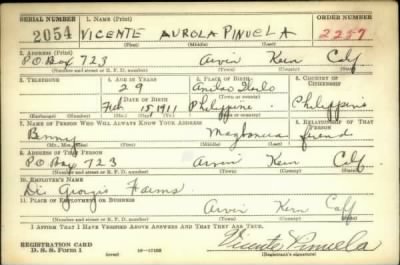 SERIAL NUMBER 1. NAME (Print) ORDER NUMBER
2054 VICENTE AUROLA PINUELA 2257
(First) (Middle) (Last)
2. ADDRESS (Print)
PO Box 723 Arvin Kern Calf
(Number and street or R. F. D. number) (Town) (County) (State)
3. TELEPHONE 4. AGE IN YEARS 5. PLACE OF BIRTH 6. COUNTRY OF CITIZENSHIP
29 Iloilo
DATE OF BIRTH (Town or county)
Feb 15, 1911 Philippine Philippine
(Exchange) (Number) (Mo.) (Day) (Yr.) (State or country)
7. NAME OF PERSON WHO WILL ALWAYS KNOW YOUR ADDRESS 8. RELATIONSHIP OF THAT PERSON
Benny friend
(Mr., Mrs., Miss) (First) (Middle) (Last)
9. ADDRESS OF THAT PERSON
PO Box 723 Arvin Kern Calf
(Number and street or R. F. D. number) (Town) (County) (State)
10. EMPLOYER'S NAME
Di Giorgio Farms
11. PLACE OF EMPLOYMENT OR BUSINESS
Arvin Kern Calf
(Number and street or R. F. D. number) (Town) (County) (State)
I AFFIRM THAT I HAVE VERIFIED ABOVE ANSWERS AND THAT THEY ARE TRUE.
REGISTRATION CARD
D. S. S. Form 1 Vicente Pinuela
(Registrant's signature)